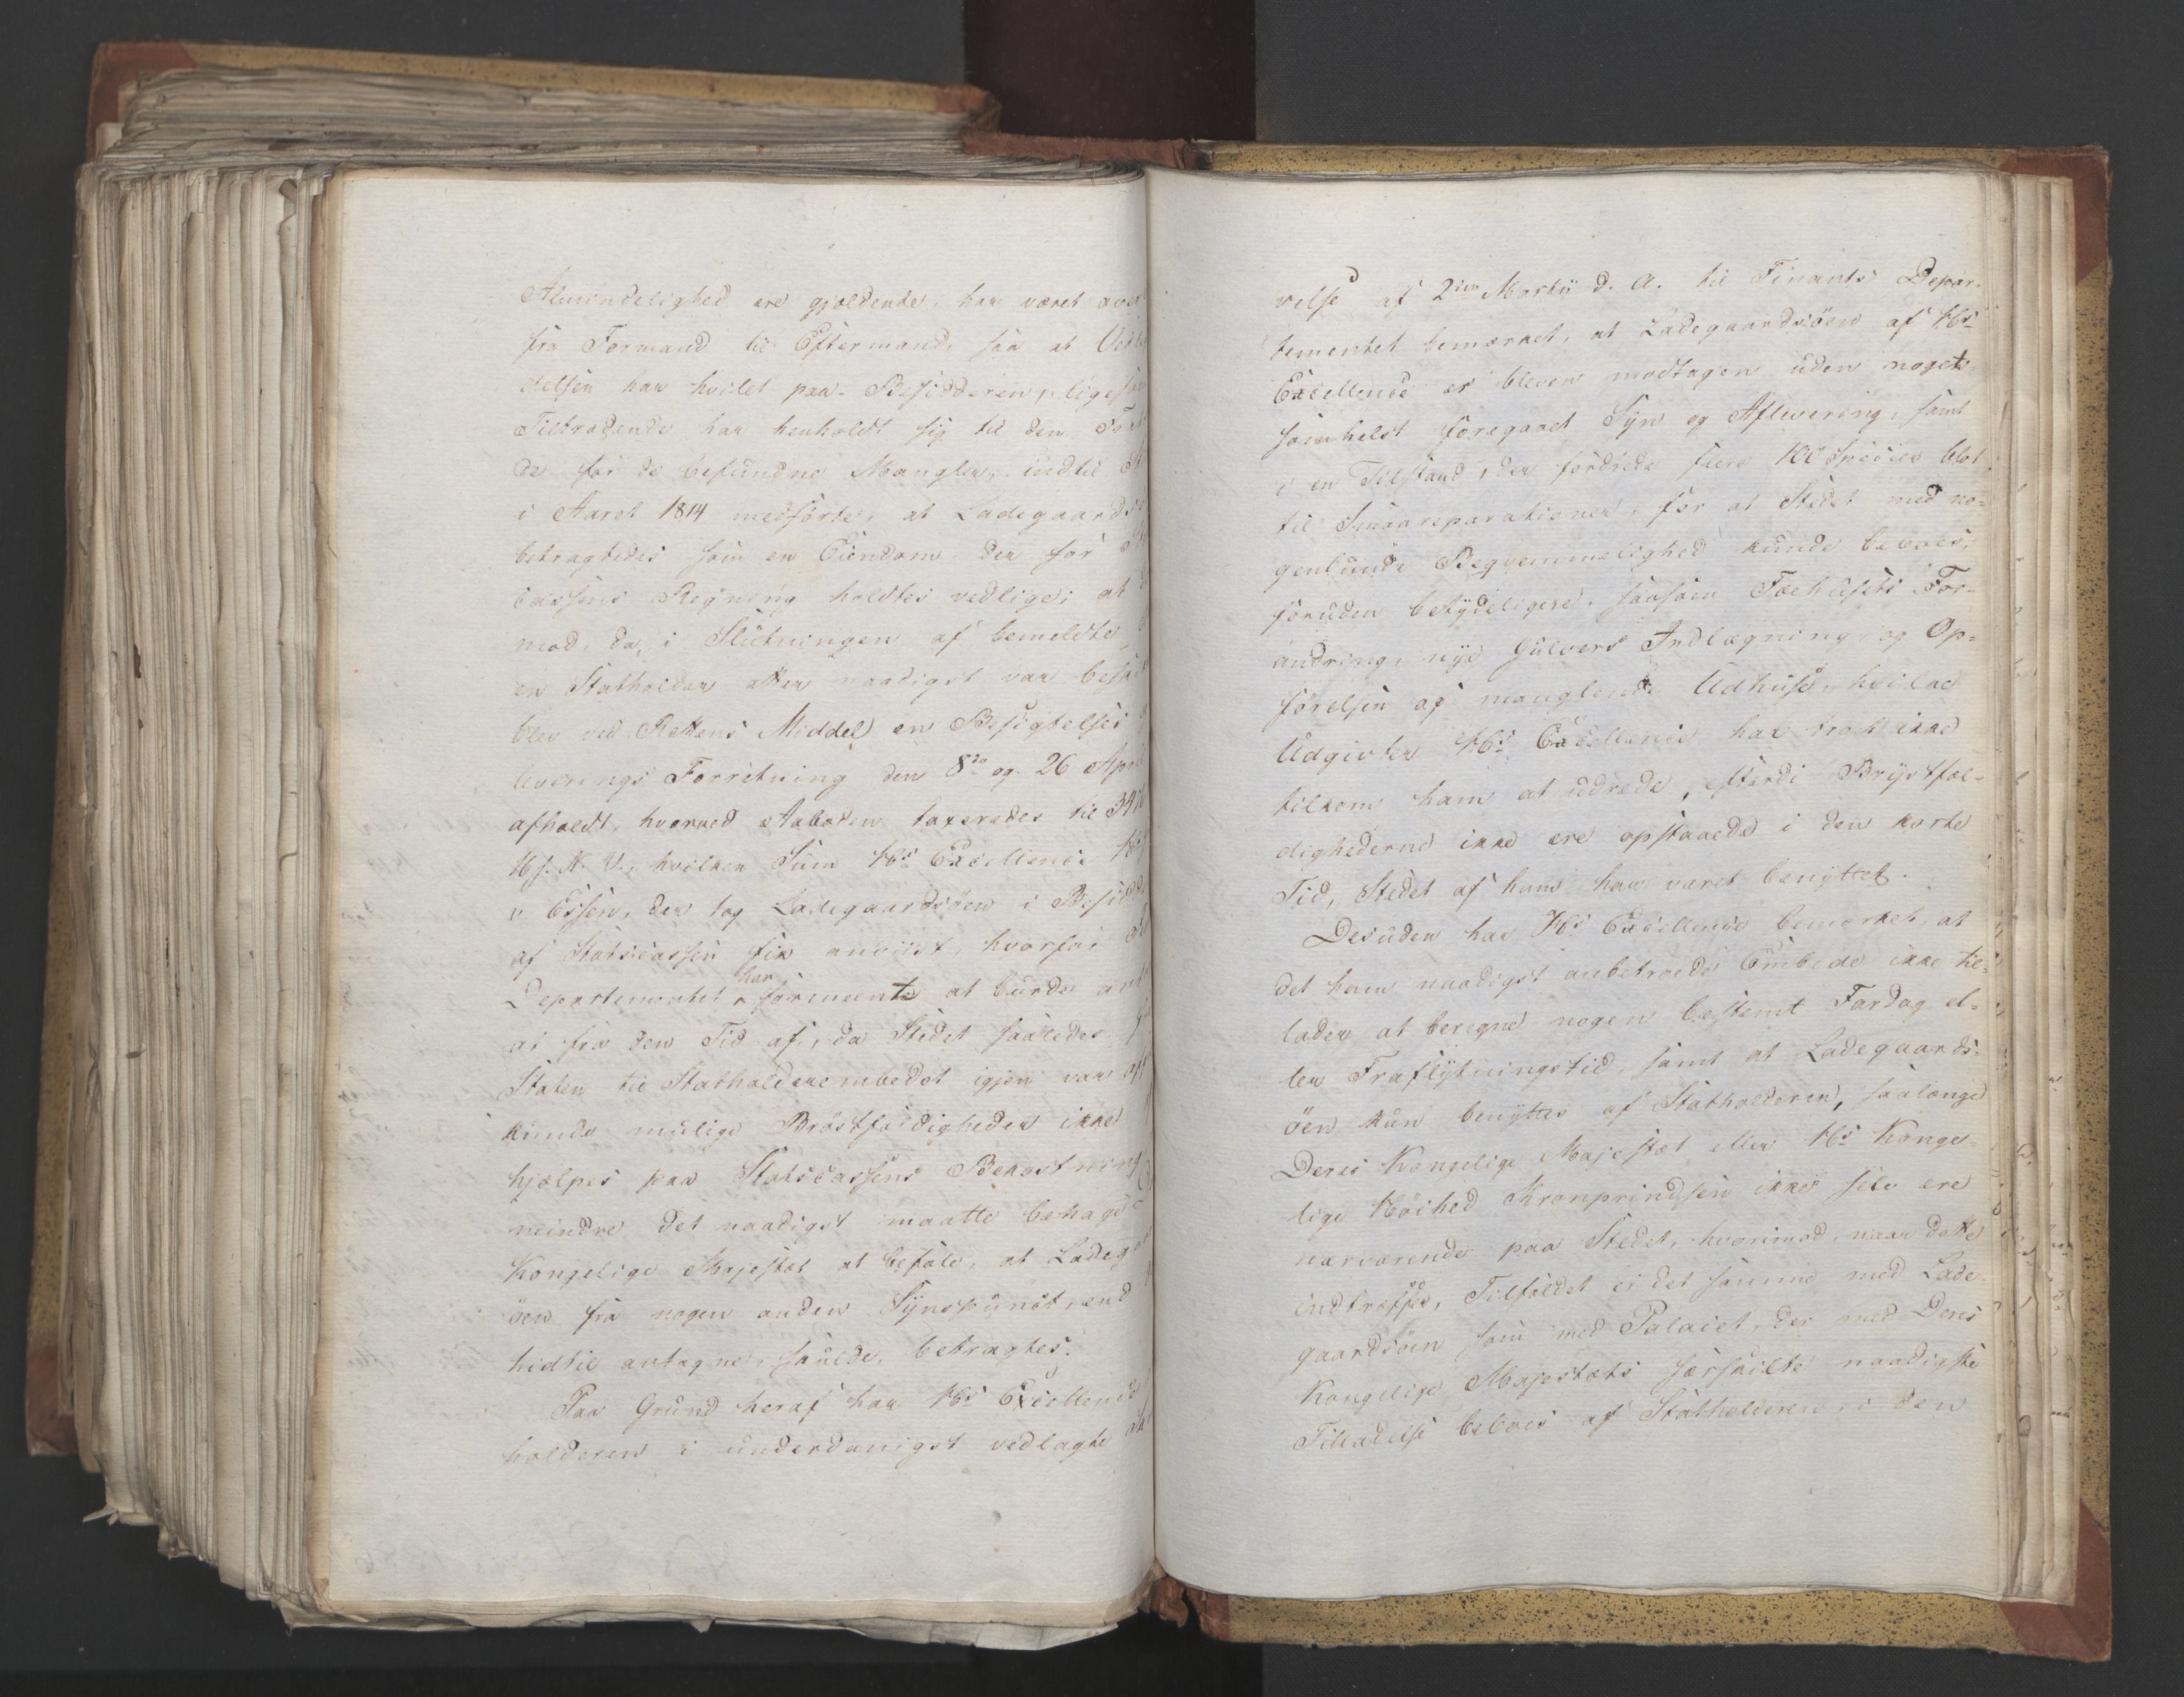 Almindelighed ere gjældende, har været over
fra Formand til Eftermand, saa at Vedli
delsen har hvilet paa Besidderen, liges
Tiltrædende har henholdt sig til den Fr
de for de befundne Mangler, indtil St
i Aaret 1814 medførte, at Ladegaards
betragtedes som en Eiendom der for
cassens Regning holdtes vedlige; at
mod, da, i Slutningen af bemeldte
en Statholder atter naadigst var besk
blev ved Rettens Middel en Besigtelses
leverings Forretning den 8de og 26 April
afholdt, hvorved Aaboden taxeredes til
N. V., hvilken Sum Hs Excellence
v. Essen, der tog Ladegaardsöen i Besidd
af Statscassen fik anviist, hvorfor
Departementet har formeent at burde an
at fra den Tid af, da Stedet saaledes
Staten til Statholderembedet igjen var
kunde mulige Bröstfældigheder ikke
hjælpes paa Statscassens Bekostning
mindre det naadigst maatte behage
Kongelige Majestæt at befale, at Ladeg
öen fra nogen anden Synspunct, end
hidtil antagne, skulde betragtes.
Paa Grund heraf har Hs Excellence
holderen i underdanigst vedlagte
velse af 2den Martii d. A. til Finants Depar-
tementet bemærket, at Ladegaardsöen af Hs
Excellence er bleven modtagen uden noget-
somhelst foregaaet Syn og Aflevering, samt
i en Tilstand, der fordrede flere 100 Species blot
til Smaareparationer, for at Stedet med no-
genlunde Beqvemmelighed kunde beboes,
foruden betydeligere, saasom Fæehusets For-
andring, nye Gulvers Indlægning, og Op-
förelsen af manglende Udhuse, hvilke
Udgivter Hs Excellence har troet ikke
tilkom ham at udrede, efterdi Brystfæl-
dighederne ikke ere opstaaede i den korte
Tid, Stedet af ham har været benyttet.
Desuden har Hs Excellence bemærket, at
det ham naadigst anbetroede Embede ikke til-
lader at beregne nogen bestemt Fardag el-
ler Fraflytningstid, samt at Ladegaards-
öen kun benyttes af Statholderen, saalænge
Deres Kongelige Majestæt eller Hs Konge-
lige Höihed Kronprindsen ikke selv ere
nærværende paa Stedet, hvorimod, naar dette
indtræffer, Tilfældet er det samme med Lade-
gaardsöen som med Palaiet, der med Deres
Kongelige Majestæts særskilte naadigste
Tilladelse beboes af Statholderen i den